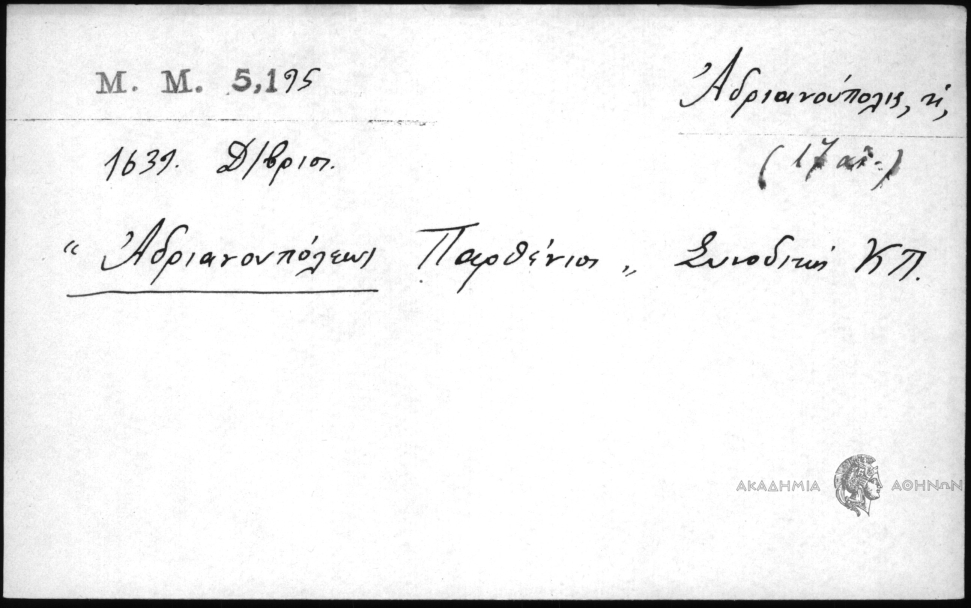 Μ. Μ. 5,195
Ἀδριανούπολις, ἡ,
1639. Δ/βριος.
(17 αἰ.)
“ Ἀδριανουπόλεως Παρθένιος „ Συνοδικῶς ΚΠ.
ΑΚΑΔΗΜΙΑ ΑΘΗΝΩΝ